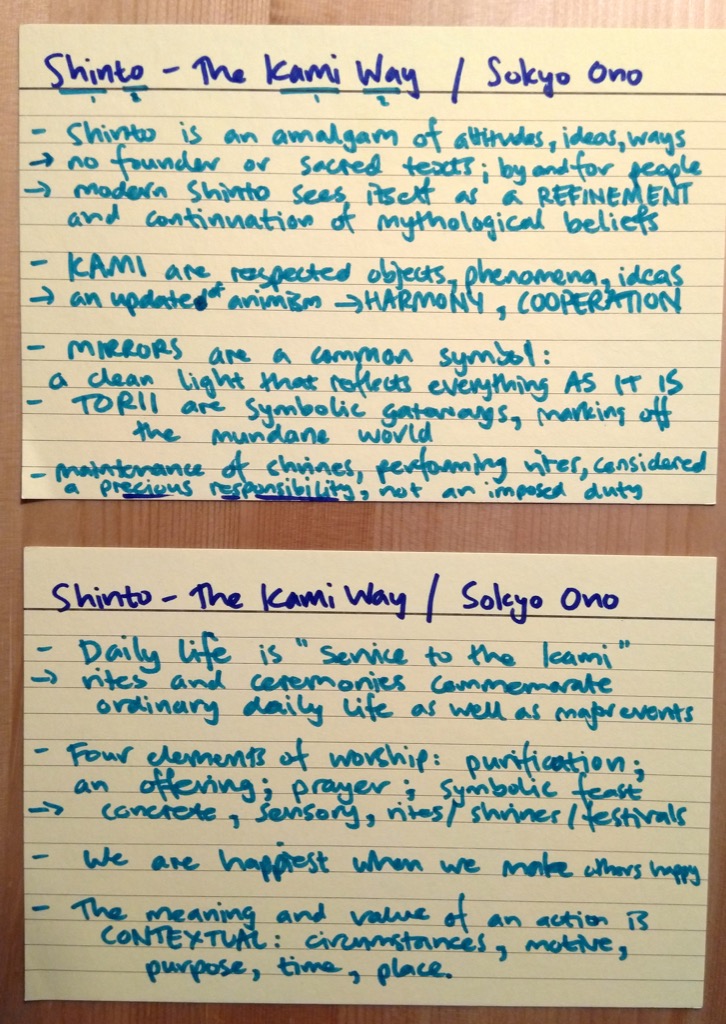 Shinto - The Kami Way / Sokyo Ono
1 2 1 2
- Shinto is an amalgam of attitudes, ideas, ways
→ no founder or sacred texts; by and for people
→ modern Shinto sees itself as a REFINEMENT
and continuation of mythological beliefs
- KAMI are respected objects, phenomena, ideas
→ an updated animism → HARMONY, COOPERATION
- MIRRORS are a common symbol:
a clean light that reflects everything AS IT IS
- TORII are symbolic gateways, marking off
the mundane world
- maintenance of shrines, performing rites, considered
a precious responsibility, not an imposed duty
Shinto - The Kami Way / Sokyo Ono
- Daily life is "service to the kami"
→ rites and ceremonies commemorate
ordinary daily life as well as major events
- Four elements of worship: purification;
an offering; prayer; symbolic feast
→ concrete, sensory, rites/shrines/festivals
- We are happiest when we make others happy
- The meaning and value of an action is
CONTEXTUAL: circumstances, motive,
purpose, time, place.